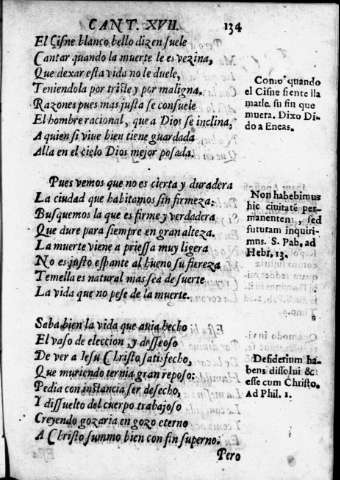 CANT. XVII. 134
El Cisne blanco bello dizen suele
Cantar quando la muerte le es vezina,
Que dexar esta vida no le duele,
Teniendola por triste y por maligna.
Razones pues mas justa se consuele
El hombre racional, que a Dios se inclina,
A quien si viue bien tiene guardada
Alla en el cielo Dios mejor posada.
Como quando
el Cisne siente lla
marse. su fin que
muera. Dixo Di-
do a Eneas.
Pues vemos que no es cierta y duradera
La ciudad que habitamos sin firmeza:
Busquemos la que es firme y verdadera
Que dure para siempre en gran alteza.
La muerte viene a priessa muy ligera
No es justo espante al bueno su fiereza
Temella es natural mas sea de suerte
La vida que no pese de la muerte.
Non habebimus
hic ciuitatē per-
manentem, sed
futuram inquiri-
mns. S. Pab, ad
Hebr, 13.
Saba bien la vida que auia hecho
El vaso de eleccion, y desseoso
De ver a Iesu Christo satisfecho,
Que muriendo ternia gran reposo:
Pedia con instancia ser desecho,
Y dissuelto del cuerpo trabajoso
Creyendo gozaria en gozo eterno
A Christo summo bien con fin superno.
Desiderium ha
bens dissolui &
esse cum Christo.
Ad Phil. 1.
Pero